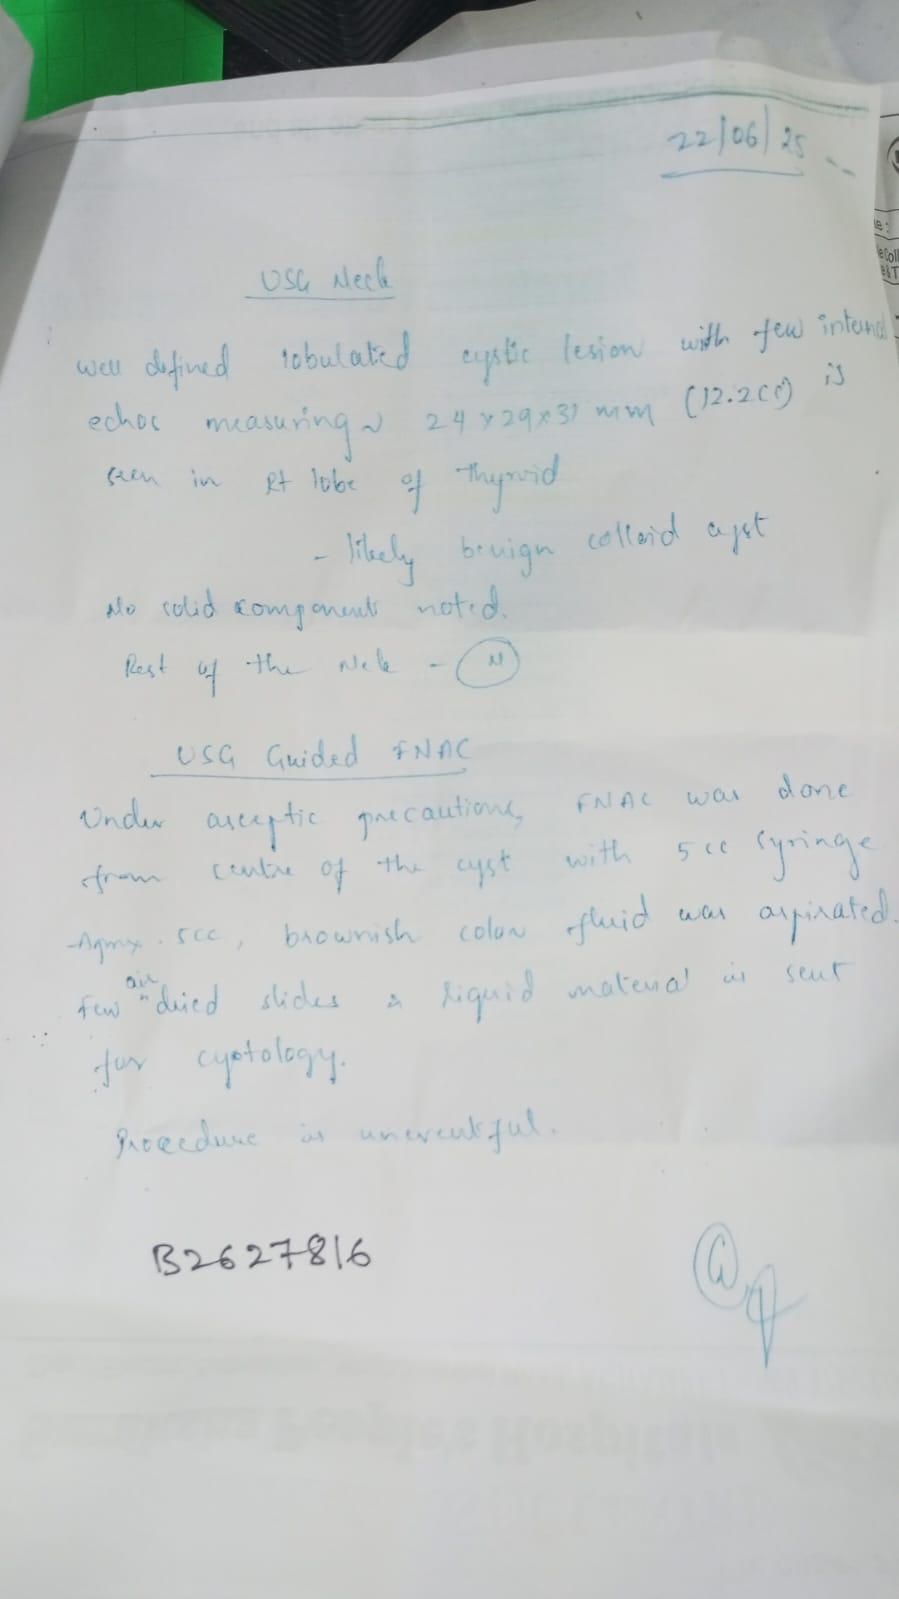 22/06/25
USG Neck
well defined lobulated cystic lesion with few internal
echoc measuring ~ 24 x 29 x 31 mm (12.2cc) is
seen in Rt lobe of Thyroid
- likely benign colloid cyst
No solid components noted.
Rest of the Neck - N
USG Guided FNAC
Under asceptic precautions, FNAC was done
from centre of the cyst with 5cc syringe
-Aprox. 5cc, brownish color fluid was aspirated.
air
Few " dried slides & liquid material is sent
for cytology.
Procedure is unerentful.
B2627816